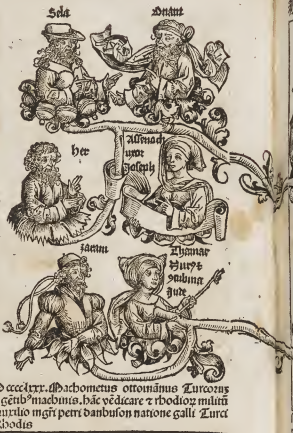 Sela
Onam
Her
Assenach
uxor
Joseph
Zaram
Thamar
Hurꝰ
Jude
cccclxxx. Machometus ottomānus Turcorū
gētibꝰ machinis. hāc vēdicare e rhodioꝝ militū
uxilio mgr̄i petri danbuson natione galli Turci
Rhodis